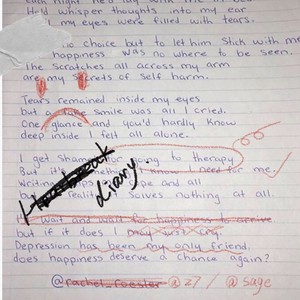 Held whisper thoughts into my ear
my eyes were filled with tears.
no choice but to let him stick with me
happiness was no where to be seen.
The scratches all across my arm
are my secrets of self harm.
Tears remained inside my eyes
but a fake smile was all I cried.
One glance and you'd hardly know
deep inside I felt all alone.
I get shame for going to therapy
But it's something I know I need for me.
Writing and all
but reality solves nothing at all.
diary.
I wait and wait for happiness to arrive
but if it does I may not cry.
Depression has been my only friend.
does happiness deserve a chance again?
@rachel_foester @z7 / @sage